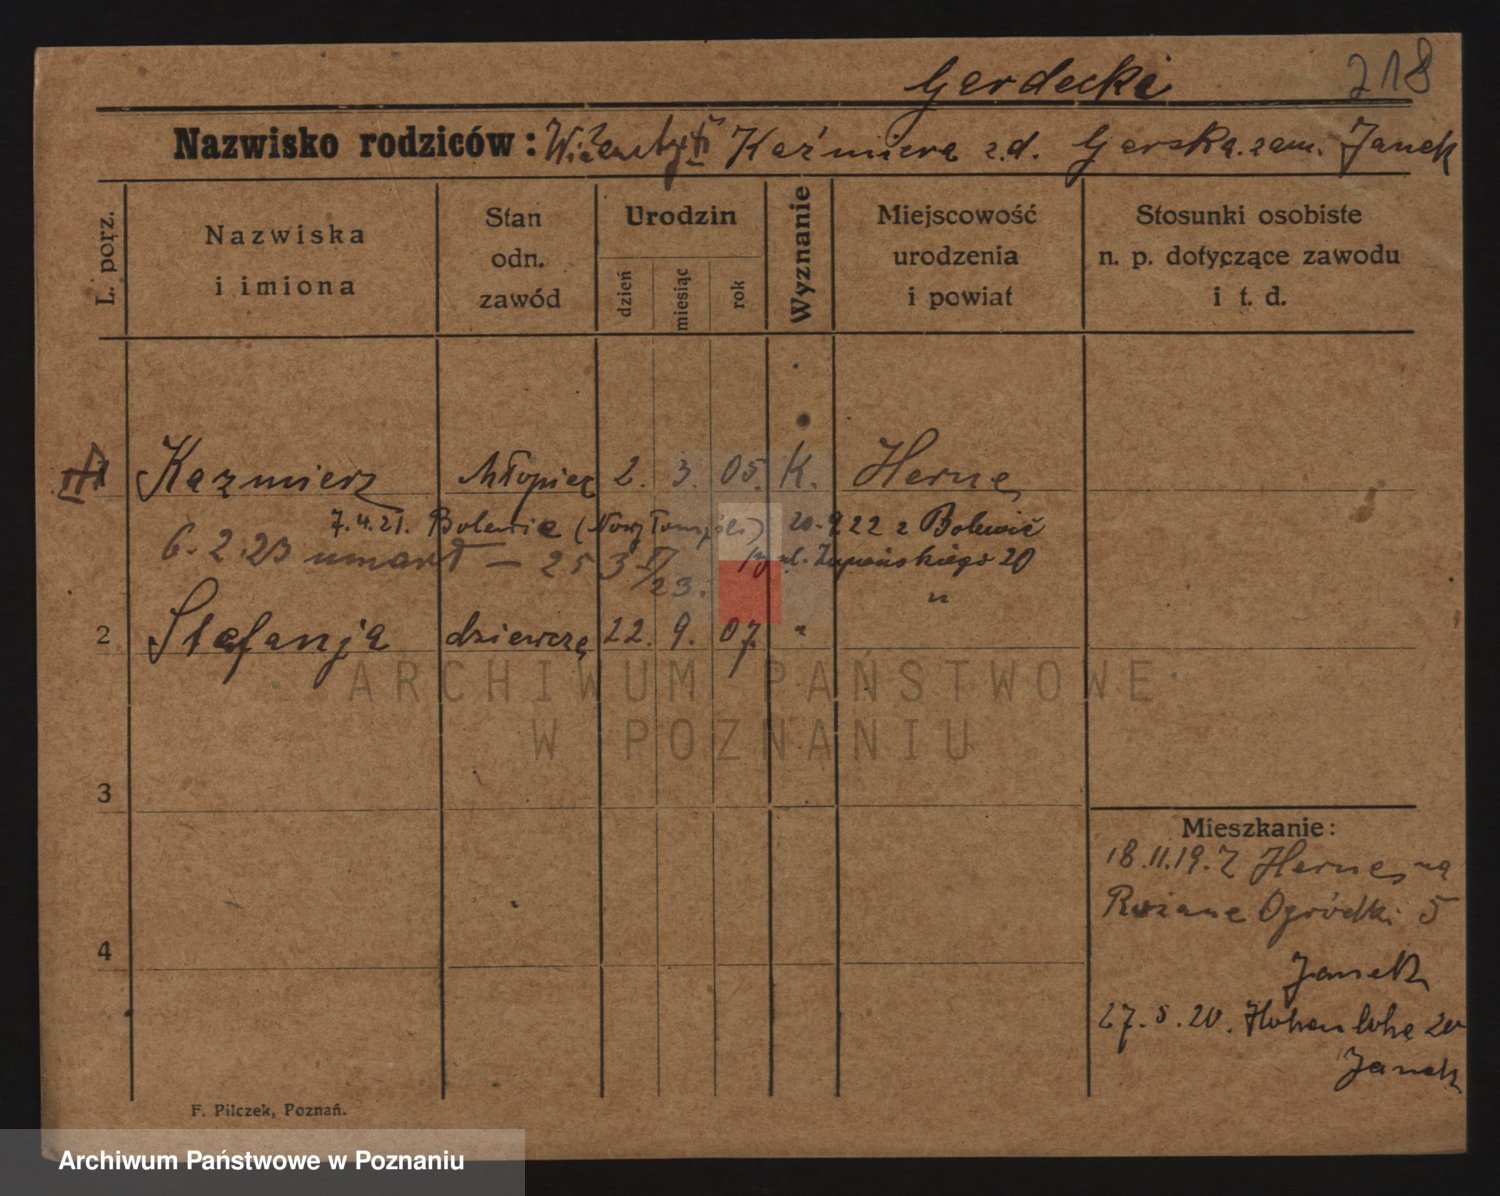 218
Gerdecki
Nazwisko rodziców: Kaźmiera z.d. Gerska. zam. Janek
L. porz.
Nazwiska i imiona
Stan odn. zawód
Urodzin
dzień
miesiąc
rok
Wyznanie
Miejscowość urodzenia i powiat
Stosunki osobiste n. p. dotyczące zawodu i t. d.
1 Kazmierz chłopiec 2. 3. 05. K. Herne
7.4.21. Bolewice (Nowy Tomyśl) 20.9.22 z Bolewic
6.2.23 umarł — 253 II/23. ul. Żupańskiego 20
2 Stefanja dziewczę 22. 9. 07. " "
3
4
Mieszkanie:
18.11.19. Z Herne, na
Różane Ogródki 5
Janek
27.5.20. Hohenlohe 20
Janek
F. Pilczek, Poznań.
ARCHIWUM PAŃSTWOWE
W POZNANIU
Archiwum Państwowe w Poznaniu